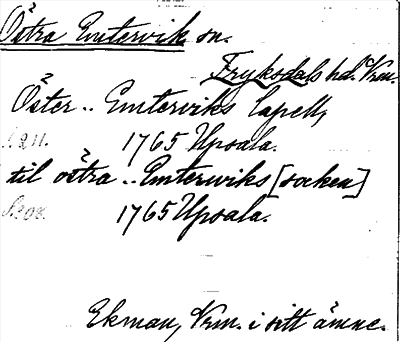 Östra Emtervik sn.
Fryksdals hd. Vrm.
Öster.. Emterviks Capell,
S. 211. 1765 Upsala.
til östra.. Emterwiks [socken]
1765 Upsala.
Ekman, Vrm. i sitt ämne.